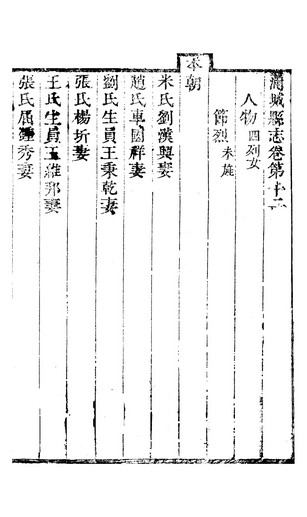 蒲城縣志卷第十二
人物 四列女
節烈 未旌
本朝
米氏劉漢興妻
趙氏車國祥妻
劉氏生員王秉乾妻
張氏楊圻妻
王氏生員王維邦妻
張氏屈鍾秀妻